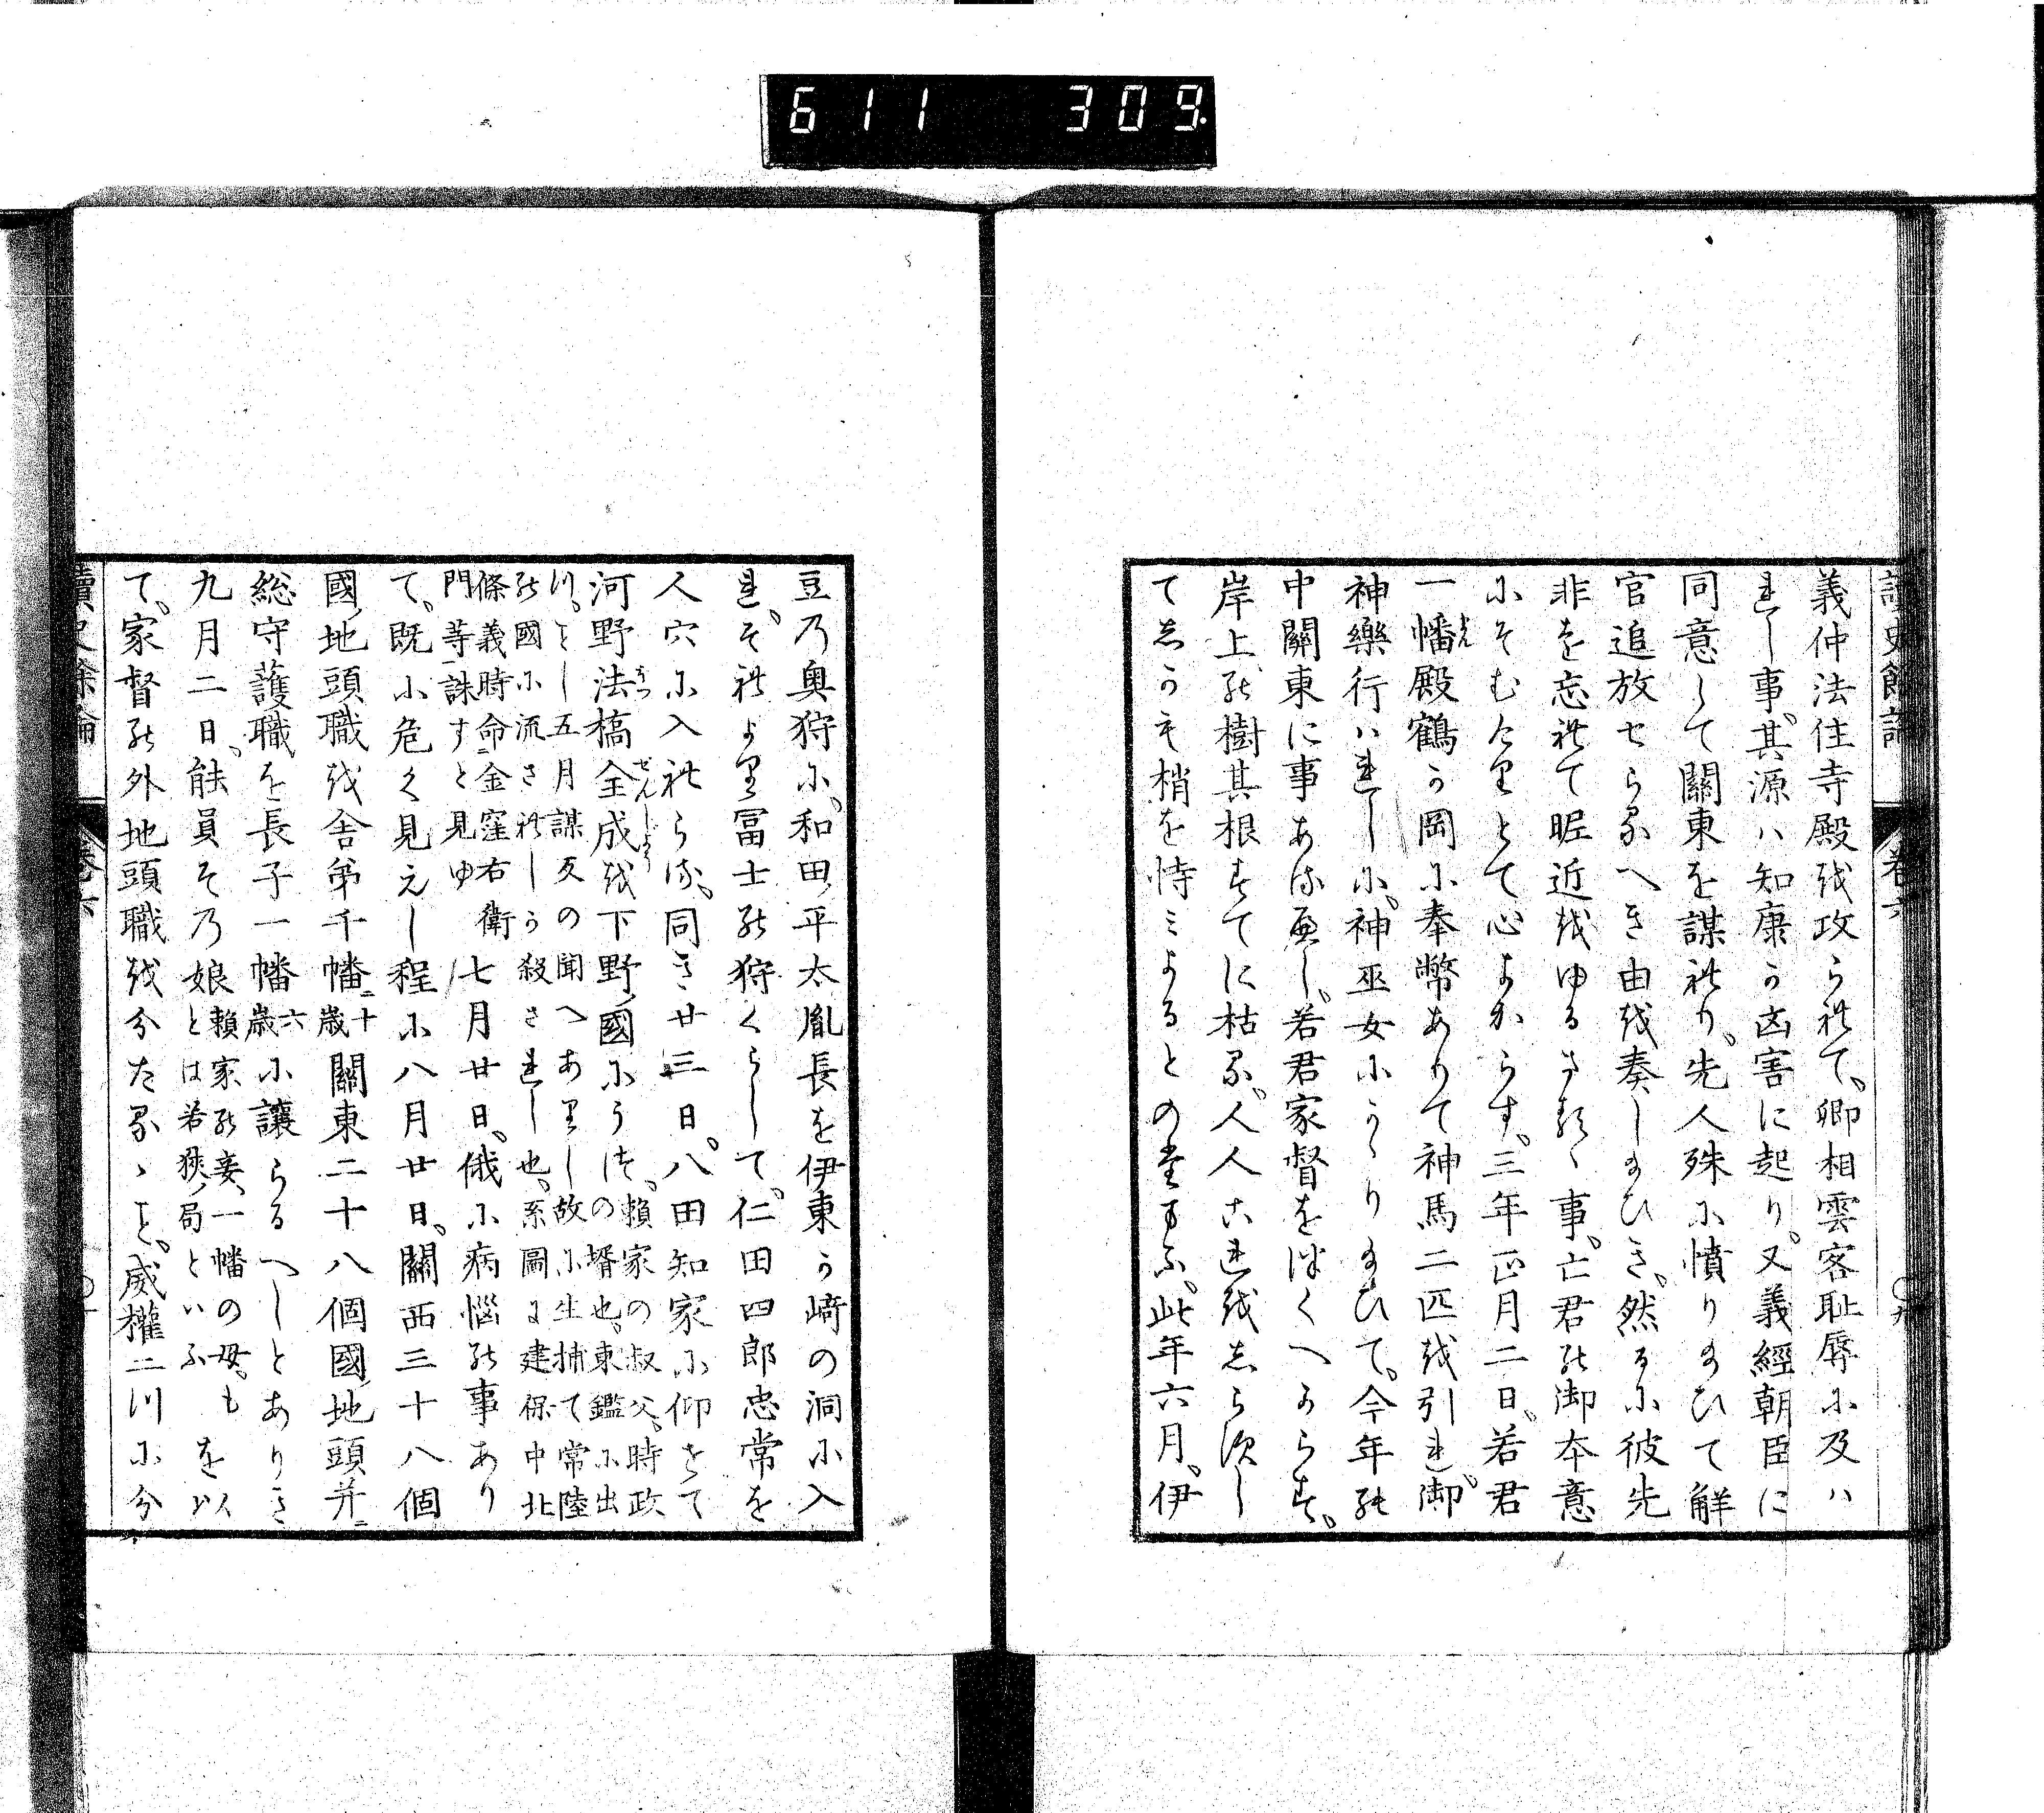 611 309
讀史餘論 卷六
義仲法住寺殿を攻られて、卿相雲客恥辱に及ハ
れし事、其源ハ知康か凶害に起り、又義經朝臣に
同意して關東を謀れり、先人殊に憤り給ひて解
官追放せらるへき由を奏し給ひき、然るに彼先
非を忘れて昵近をゆるさるゝ事、亡君の御本意
にそむけりとて心よからす、三年正月二日、若君
一幡殿鶴か岡に奉幣ありて神馬二匹を引れ、御
神樂行ハれしに、神巫女にかゝり給ひて、今年の
中關東に事あるへし、若君家督を継くへからす、
岸上の樹其根すてに枯る、人人これをしらすし
てしかも梢を恃ミよるとの給ふ、此年六月、伊
豆乃奥狩に、和田平太胤長を伊東か﨑の洞に入
れ、それより冨士の狩くらして、仁田四郎忠常を
人穴に入れらる、同き廿三日、八田知家に仰せて
河野法橋全成を下野國にうつ、頼家の叔父、時政
の壻也、東鑑に出
つ、ことし五月謀反の聞へありし故に生捕て常陸
の國に流されしか殺されし也、系圖に建保中北
條義時命金窪右衛
門等誅すと見ゆ
七月廿日、俄に病惱の事あり
て、既に危く見えし程に八月廿日、關西三十八個
國地頭職を舎弟千幡十二歳關東二十八個國地頭并
総守護職を長子一幡六歳に讓らるへしとありき
九月二日、能員その娘頼家の妾、一幡の母、も
とは若狹局といふ
を以
て、家督の外地頭職を分たるゝこと、威權二つに分
讀史餘論 卷六